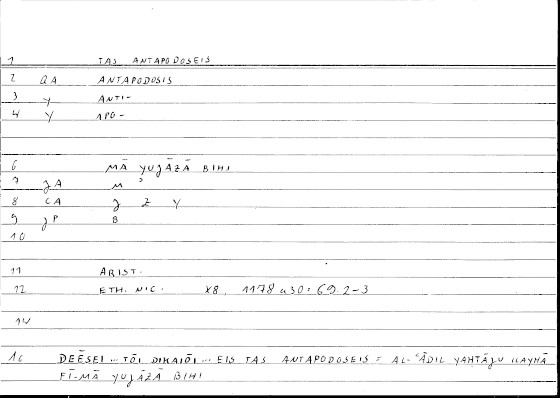 1 TAS ANTAPODOSEIS
2 QA ANTAPODOSIS
3 Y ANTI-
4 Y APO-
6 MĀ YUǧĀZĀ BIHI
7 ǧA M
8 CA ǧ Z Y
9 ǧP B
10
11 ARIST.
12 ETH. NIC. X8, 1178 a30 = 69.2-3
14
16 DEĒSEI ... TŌI DIKAIŌI ... EIS TAS ANTAPODOSEIS = AL-ʿĀDIL YAḤTĀǧU ILAYHĀ
FĪ-MĀ YUǧĀZĀ BIHI